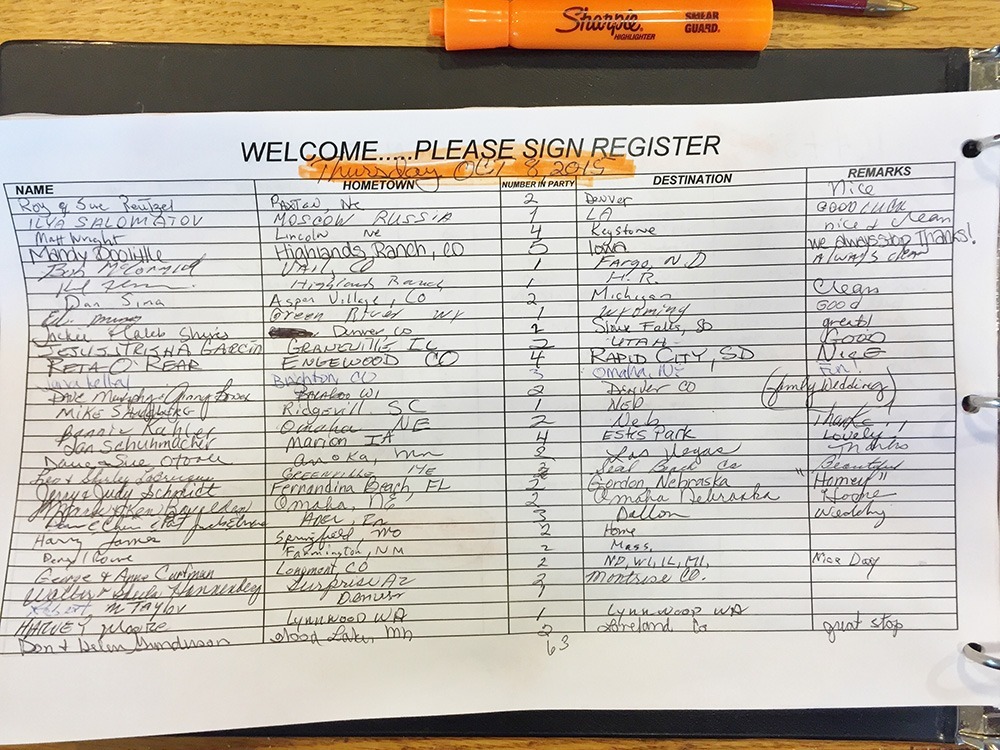 Sharpie SMEAR
HIGHLIGHTER GUARD.
WELCOME.....PLEASE SIGN REGISTER
Thursday OCT 8 2015
NAME HOMETOWN NUMBER IN PARTY DESTINATION REMARKS
Roy & Sue Paxton, NE 2 Denver Nice
ILYA SALOMATOV MOSCOW RUSSIA 1 LA GOOD LUCK
Matt Wright Lincoln NE 4 Keystone nice & clean
Mandy Doolittle Highlands Ranch, CO 5 Iowa We always stop Thanks!
Bob McCormick VAIL, CO 1 Fargo, N.D Always clean
Highlands Ranch 1 H.R.
Dan Sina Aspen Village, CO 2 Michigan Clean
Green River WY 1 Wyoming GOOD
Jackie & Caleb Denver CO 2 Sioux Falls, SD great!
JESUS, TRISHA GARCIA GRANEVILLE IL 2 UTAH GOOD
RETA O'REAR ENGEWOOD CO 4 RAPID CITY, SD NICE
Brighton, CO 3 Omaha, NE Fun!
Dave Murphy & WI 2 DENVER CO (Family Wedding)
MIKE Ridgevill SC NED
Bonnie Kahler Omaha NE 2 Neb Thanks!
Dan Schuhmacher Marion IA 4 Estes Park Lovely
Dave & Sue O'Toole Anoka, Mn 2 Las Vegas Thanks
& Shirley GREENVILLE, ME Seal Beach Ca Beautiful
Jerry & Judy Schmidt Fernandina Beach, FL 2 Gordon, Nebraska "Homey"
Omaha, NE 2 Omaha Nebraska Home
3 Dalton Wedding
Harry James Springfield, MO 2 Home
Farmington, NM 2 Mass.
George & Anne Longmont, CO 2 ND, WI, IL, MI, Nice Day
Walber & Sheila Hannenberg Surprise AZ 2 Montrose CO.
Robert M Taylor Denver 1
HARVEY Lynnwood WA 1 Lynnwood WA
Don & Helen Gunderson Wood Lake, Mn 2 Loveland Co great stop
63